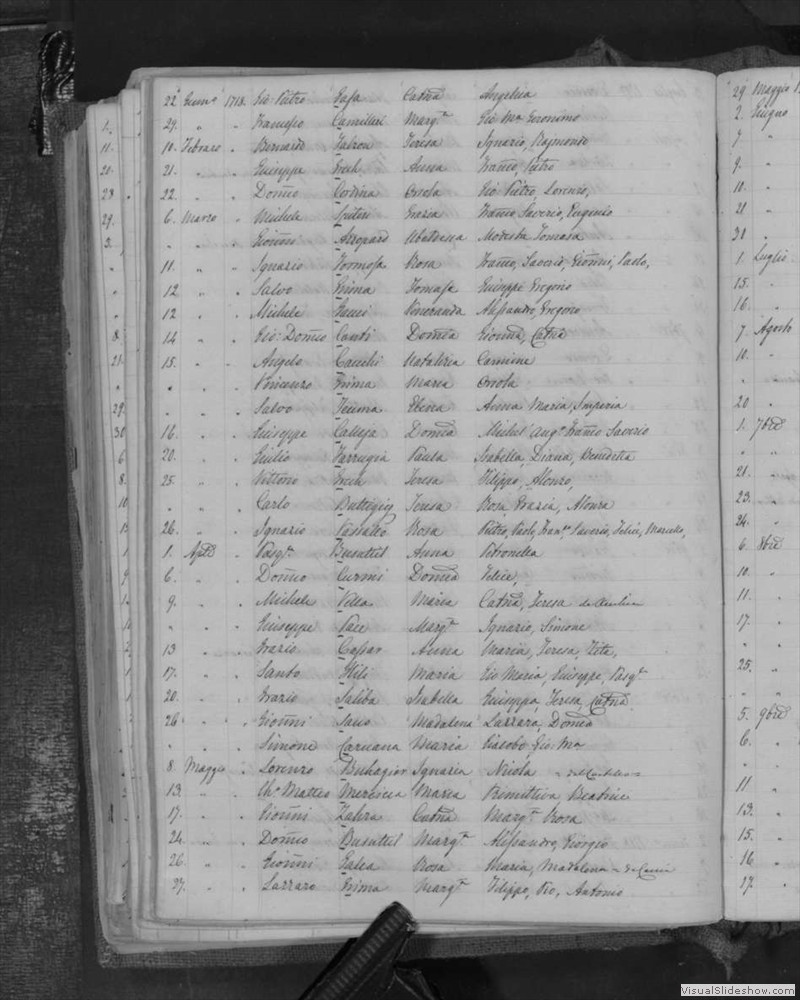 22 Genn° 1718. Gio Pietro Gafa Catna Angelica
29. " " Francesco Camilleri Marg.ta Gio Ma Geronimo
10 Febraro " Bernardo Zahra Teresa Ignazio, Raymondo
21. " " Giuseppe Grech Anna Franco, Pietro
22. " " Domco Cordina Orsola Gio Pietro, Lorenzo,
6. Marzo " Michele Spiteri Grazia Franco Saverio, Eugenio
" " " Gionni Azzopard Ubaldesca Modesta Tomasa
11. " " Ignazio Formosa Rosa Franco, Saverio, Gionni, Paolo,
12. " " Salvo Grima Tomasa Giuseppe Gregorio
12 " " Michele Veneranda Alessandro, Gregorio
14 " " Gio: Domco Domca Gionna, Catna
15. " " Angelo Natalizia Carmine
" " " Vincenzo Grima Maria Orsola
" " " Salvo Anna Maria, Imperia
16. " " Giuseppe Calleja Domca Michel Ang° Franco Saverio
20. " " Giulio Farrugia Paula Isabella, Diana, Benedetta
25. " " Vittorio Grech Teresa Filippo, Alonzo,
" " " Carlo Buttegieg Teresa Rosa Grazia, Alonza
26. " " Ignazio Vassallo Rosa Pietro, Paolo, Fran.co Saverio, Felice, Marcello,
1. Aple " Pasq.le Busuttil Anna Petronella
6. " " Domco Curmi Domca Felice,
9. " " Michele Vella Maria Catna, Teresa
" " " Giuseppe Pace Marg.ta Ignazio, Simone
13 " " Grazio Cassar Anna Maria, Teresa, Vita,
17. " " Santo Hili Maria Gio Maria, Giuseppe, Pasq.le
20. " " Grazio Saliba Isabella Giuseppa, Teresa, Catna
26 " " Gionni Saus Madalena Lazzara, Domca
" " " Simone Caruana Maria Giacobo Gio: Ma
8. Maggio " Lorenzo Buhagiar Ignazia Nicola
13. " " Ch° Matteo Mercieca Maria Primitiva Beatrice
17. " " Gionni Zahra Catna Marg.ta Rosa
24. " " Domco Busuttil Marg.ta Alessandro, Giorgio
26. " " Gionni Galea Rosa Maria, Madalena
27. " " Lazzaro Grima Marg.ta Filippo, Pio, Antonio
29 Maggio
2. Giugno
7 "
9. "
10. "
21 "
30 "
1. Luglio
15. "
16. "
7. Agosto
10. "
"
20 "
1. 7bre
" "
21. "
23. "
24. "
6. 8bre
10. "
11. "
17. "
" "
25. "
" "
5. 9bre
6. "
"
11 "
13. "
15. "
16 "
17. "
VisualSlideshow.com